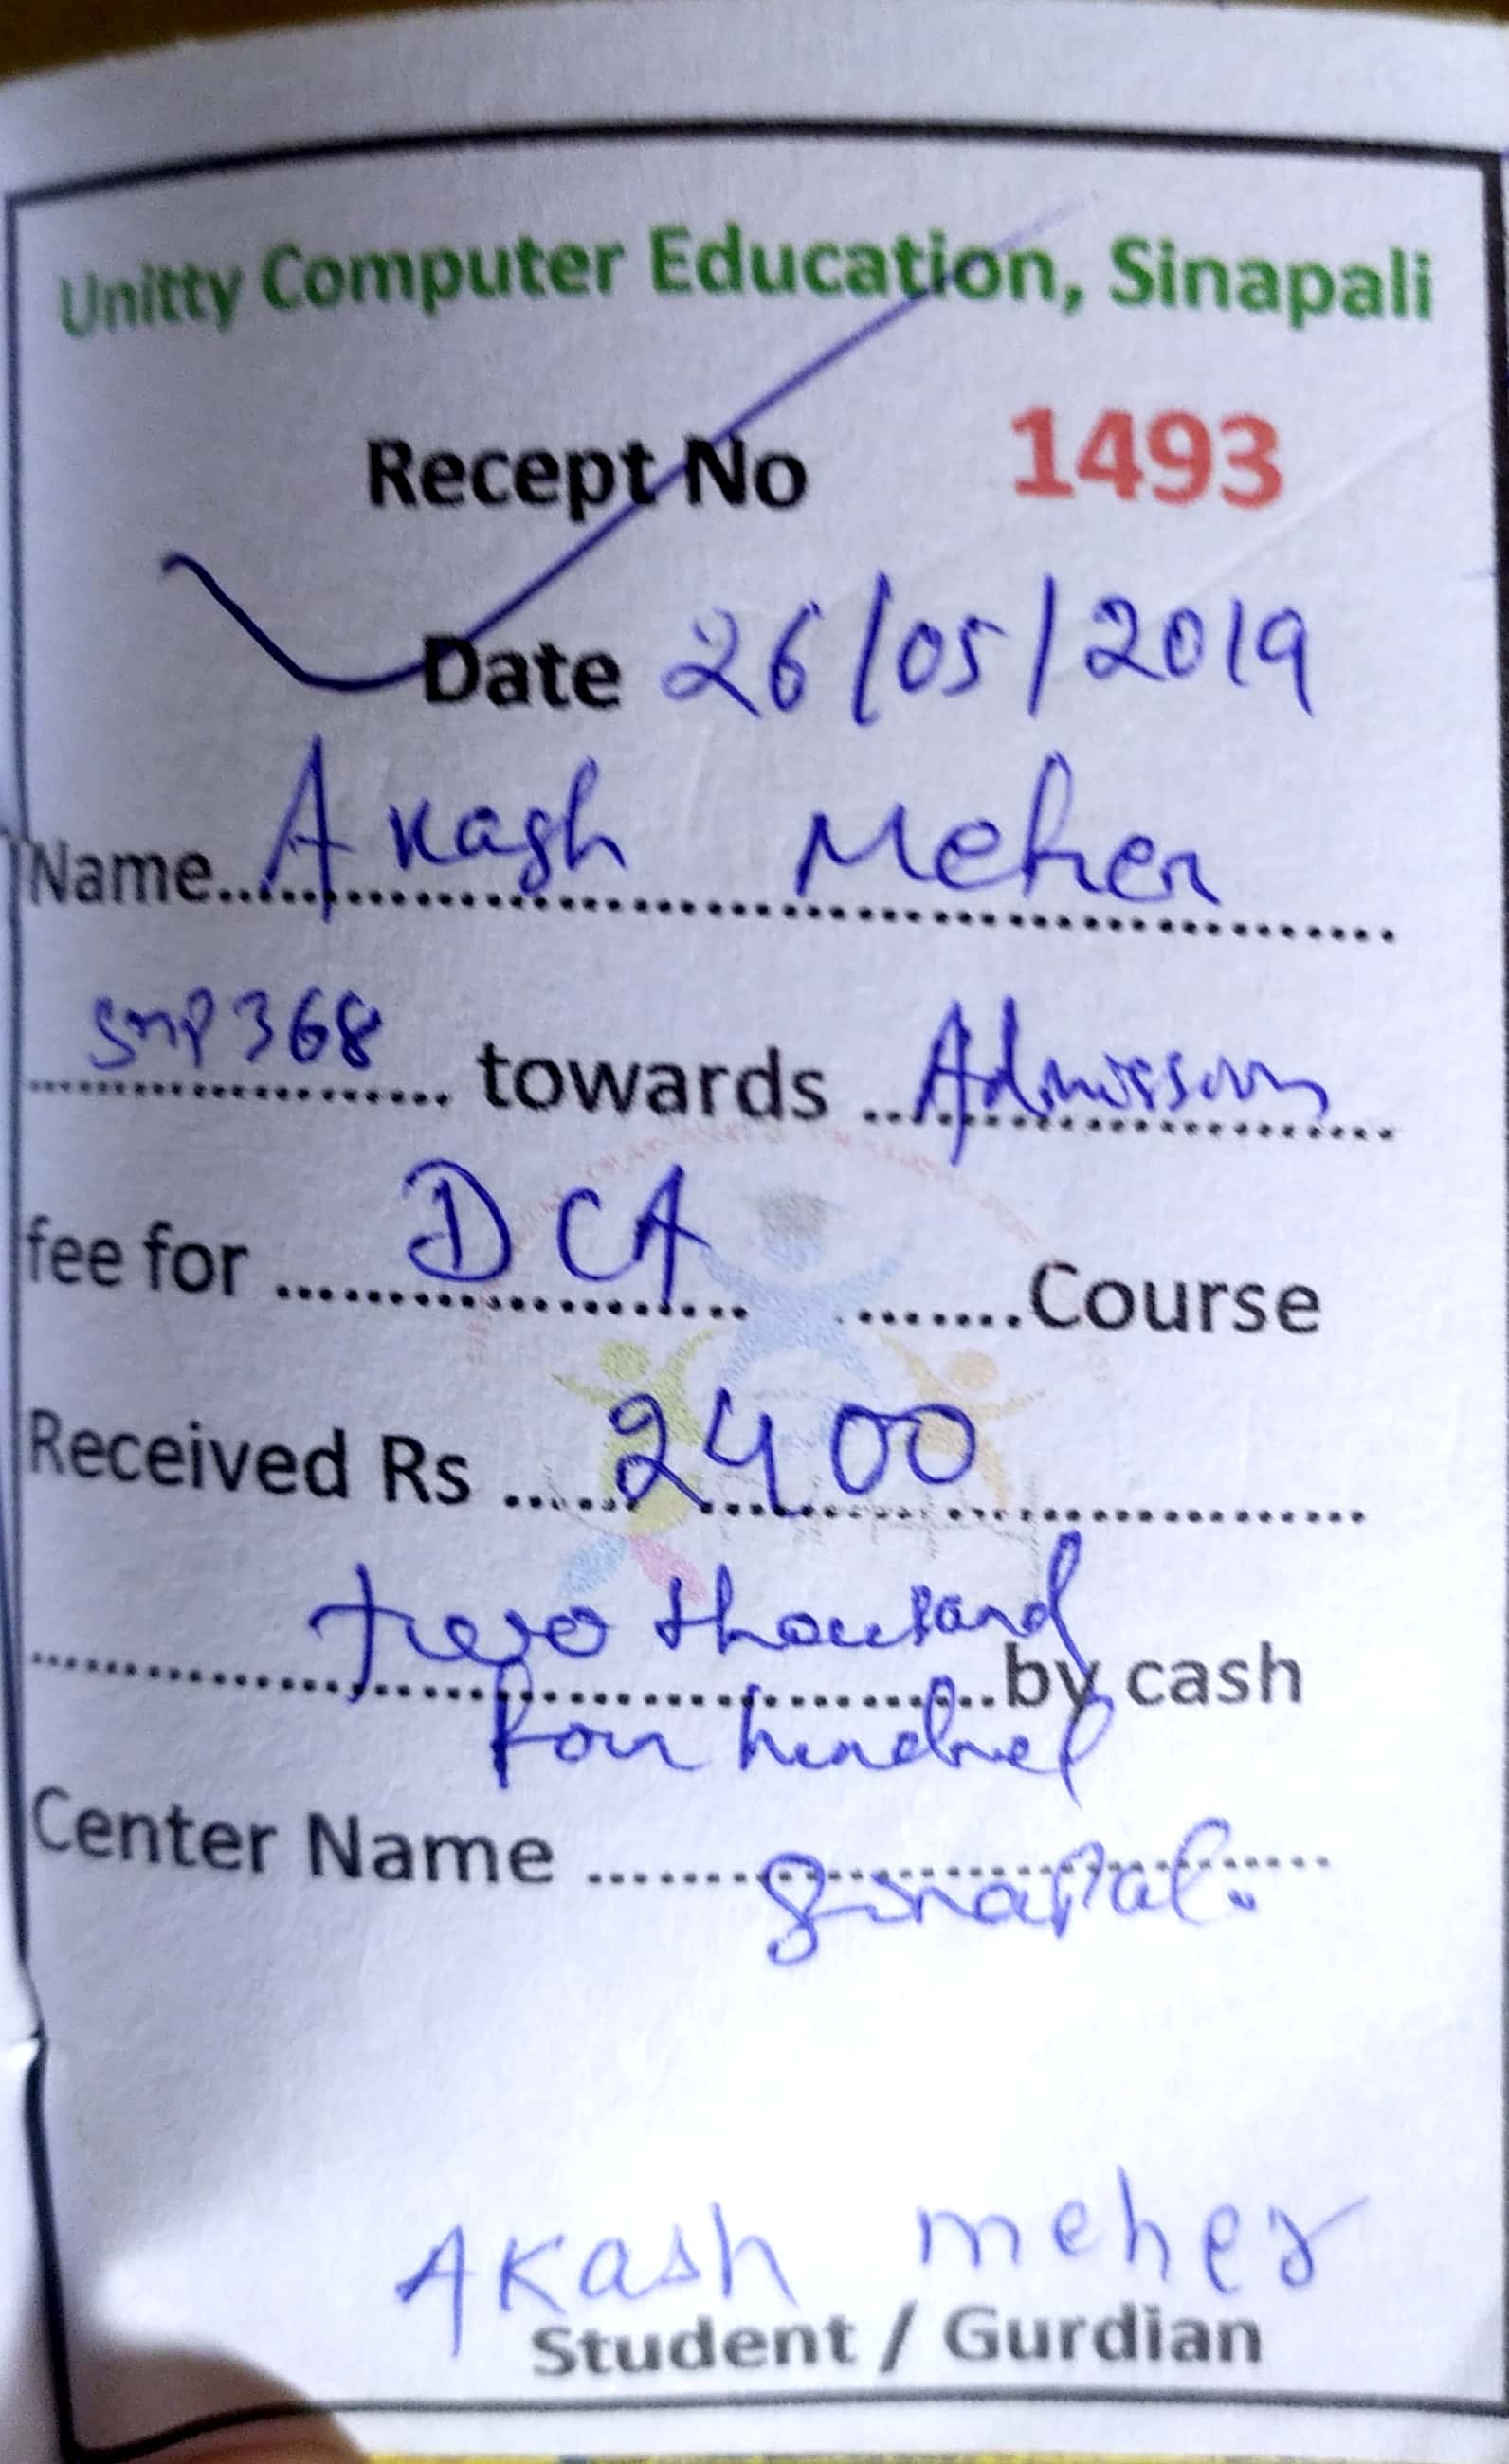 Unitty Computer Education, Sinapali
Recept No 1493
Date 26/05/2019
Name....Akash Meher....
....SNP368.... towards ....Admission....
fee for ....DCA.... ....Course
Received Rs ....2400....
....two thousand....by cash
four hundred
Center Name ....Sinapali....
AKash meher
Student / Gurdian